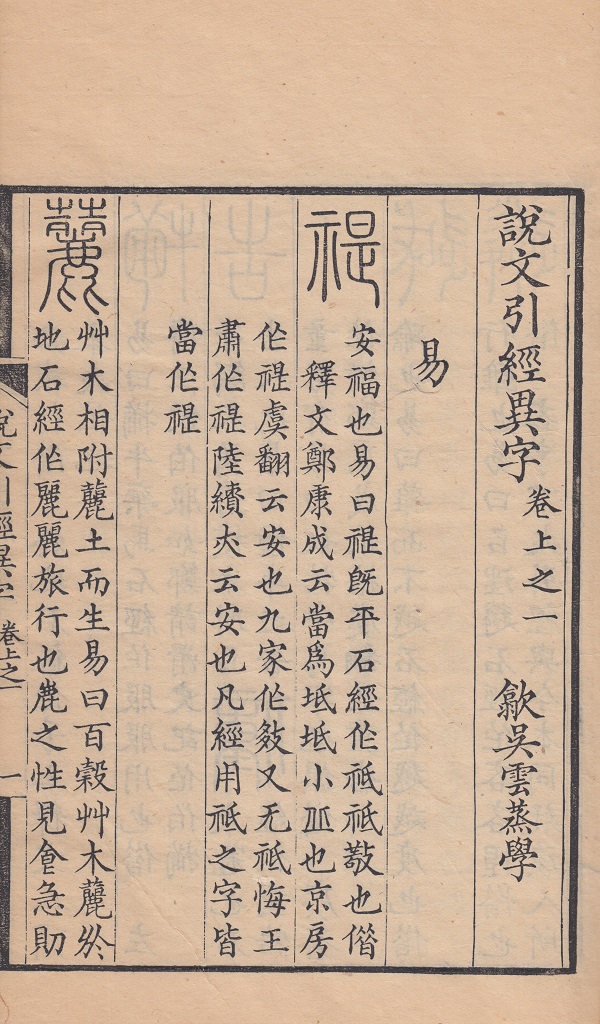 說文引經異字 卷上之一 歙吳雲蒸學
易
禔
安福也易曰禔旣平石經作祗祗敬也
釋文鄭康成云當爲坻坻小丠也京房
作禔虞翻云安也九家作又无祗悔王
肅作禔陸績亦云安也凡經用祗之字皆
當作禔
䕻
艸木相附䕻土而生易曰百穀艸木䕻於
地石經作麗麗旅行也鹿之性見食急則
說文引經異字 卷上之一 一